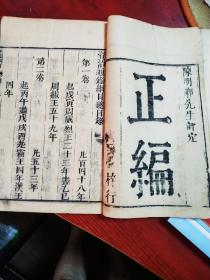 陳明卿先生評定
正編
資治通鑑綱目目錄
第一卷 凡百四十八年
起戊寅周威烈王二十三年盡乙巳
周赧王五十九年
第二卷 凡五十三年
起丙午盡戊戌西楚霸王四年漢王
四年